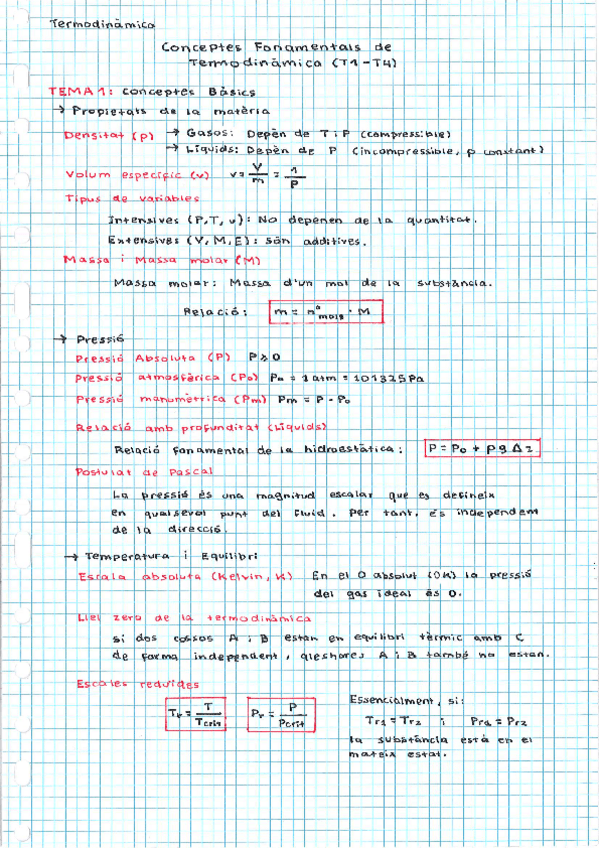 Termodinàmica
Conceptes Fonamentals de
Termodinàmica (T1-T4)
TEMA 1: Conceptes Bàsics
→ Propietats de la matèria
Densitat (ρ) → Gasos: Depèn de T i P (compressible)
→ Líquids: Depèn de P (incompressible, ρ constant)
Volum específic (v) v = V/m = 1/ρ
Tipus de variables
Intensives (P, T, v): No depenen de la quantitat.
Extensives (V, M, E): són additives.
Massa i Massa molar (M)
Massa molar: Massa d'un mol de la substància.
Relació: m = nº mols · M
→ Pressió
Pressió Absoluta (P) P ≥ 0
Pressió atmosfèrica (P₀) P₀ = 1 atm = 101325 Pa
Pressió manomètrica (Pm) Pm = P - P₀
Relació amb profunditat (Líquids)
Relació fonamental de la hidroestàtica: P = P₀ + ρ g Δz
Postulat de Pascal
La pressió és una magnitud escalar que es defineix
en qualsevol punt del fluid. Per tant, és independem
de la direcció.
→ Temperatura i Equilibri
Escala absoluta (Kelvin, K) En el 0 absolut (0K) la pressió
del gas ideal és 0.
Llei zero de la termodinàmica
si dos cossos A i B estan en equilibri tèrmic amb C
de forma independent, aleshores A i B també ho estan.
Escales reduïdes
Tr = T/Tcrit Pr = P/Pcrit Essencialment, si:
Tr1 = Tr2 i Pr1 = Pr2
la substància està en el
mateix estat.